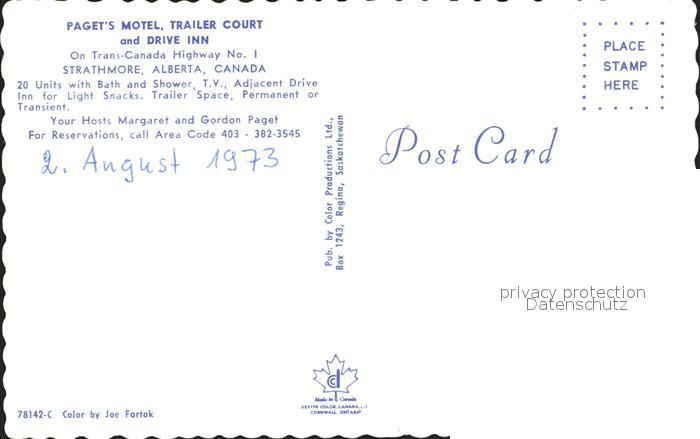 PAGET'S MOTEL, TRAILER COURT
and DRIVE INN
On Trans-Canada Highway No. 1
STRATHMORE, ALBERTA, CANADA
20 Units with Bath and Shower, T.V., Adjacent Drive
Inn for Light Snacks. Trailer Space, Permanent or
Transient.
Your Hosts Margaret and Gordon Paget
For Reservations, call Area Code 403 - 382-3545
2. August 1973
PLACE
STAMP
HERE
Post Card
Pub. by Color Productions Ltd.,
Box 1243, Regina, Saskatchewan
privacy protection
Datenschutz
Made in Canada
CORNWALL, ONTARIO
78142-C Color by Joe Fartak